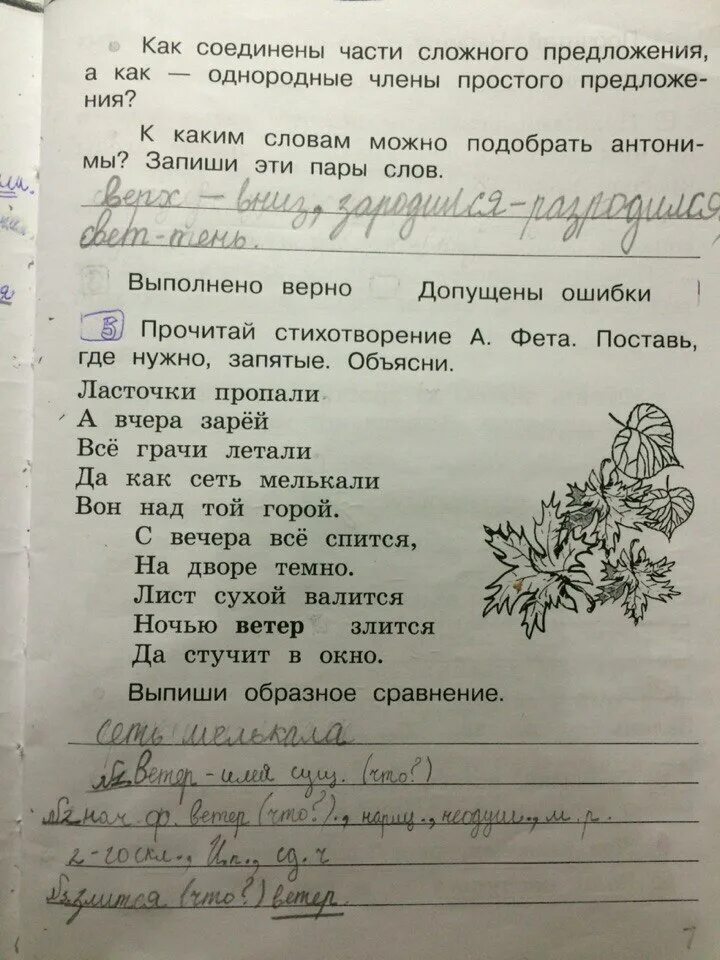 Как соединены части сложного предложения,
а как — однородные члены простого предложе-
ния?
К каким словам можно подобрать антони-
мы? Запиши эти пары слов.
верх – вниз, зародился – разродился,
свет – тень.
Выполнено верно Допущены ошибки
3 Прочитай стихотворение А. Фета. Поставь,
где нужно, запятые. Объясни.
Ласточки пропали
А вчера зарёй
Всё грачи летали
Да как сеть мелькали
Вон над той горой.
С вечера всё спится,
На дворе темно.
Лист сухой валится
Ночью ветер злится
Да стучит в окно.
Выпиши образное сравнение.
сеть мелькала
№1 Ветер – имя сущ. (что?)
№2 нач. ф. ветер (что?)., нариц., неодуш., м. р.
2-го скл., И.п., ед. ч
№3 злится (что?) ветер.
7